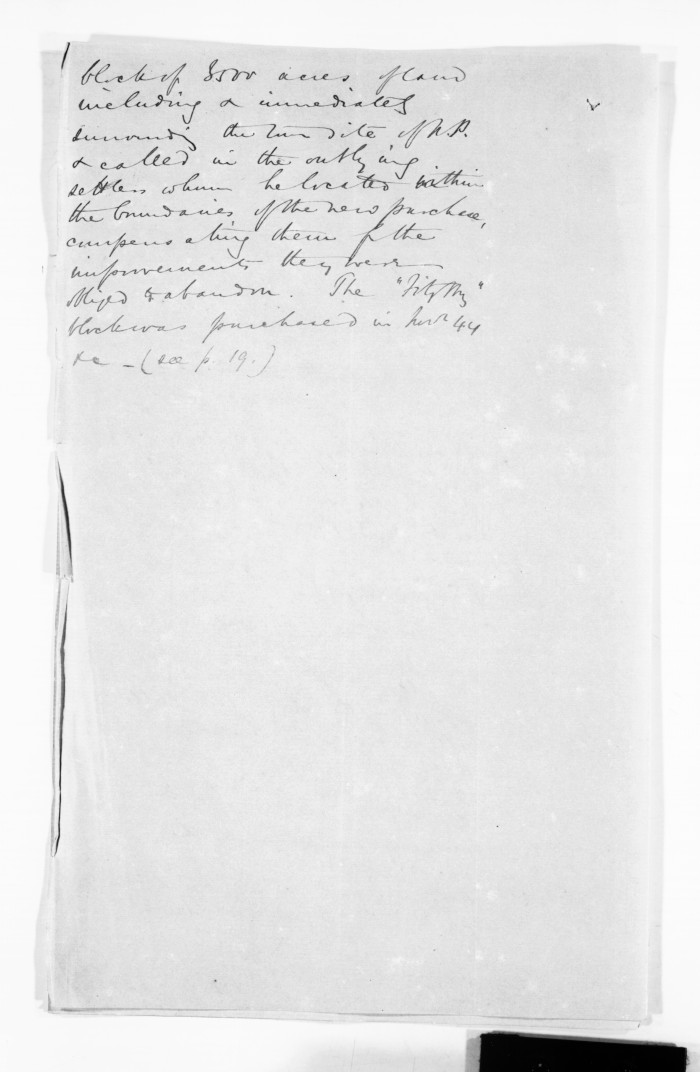 block of 3500 acres of land
including & immediately
surrounding the town site of N.P.
& called in the outlying
settlers whom he located within
the boundaries of the new purchase,
compensating them for the
improvements they were
obliged to abandon. The "Fitzroy"
block was purchased in Novr 44
&c - (see p. 19.)